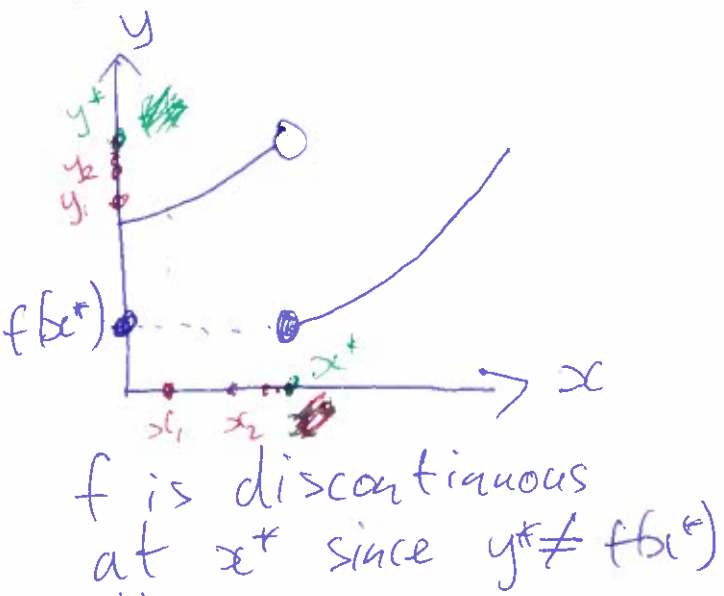 y
y*
y₂
y₁
f(x*)
x*
x
x₁ x₂
f is discontinuous
at x* since y* ≠ f(x*)